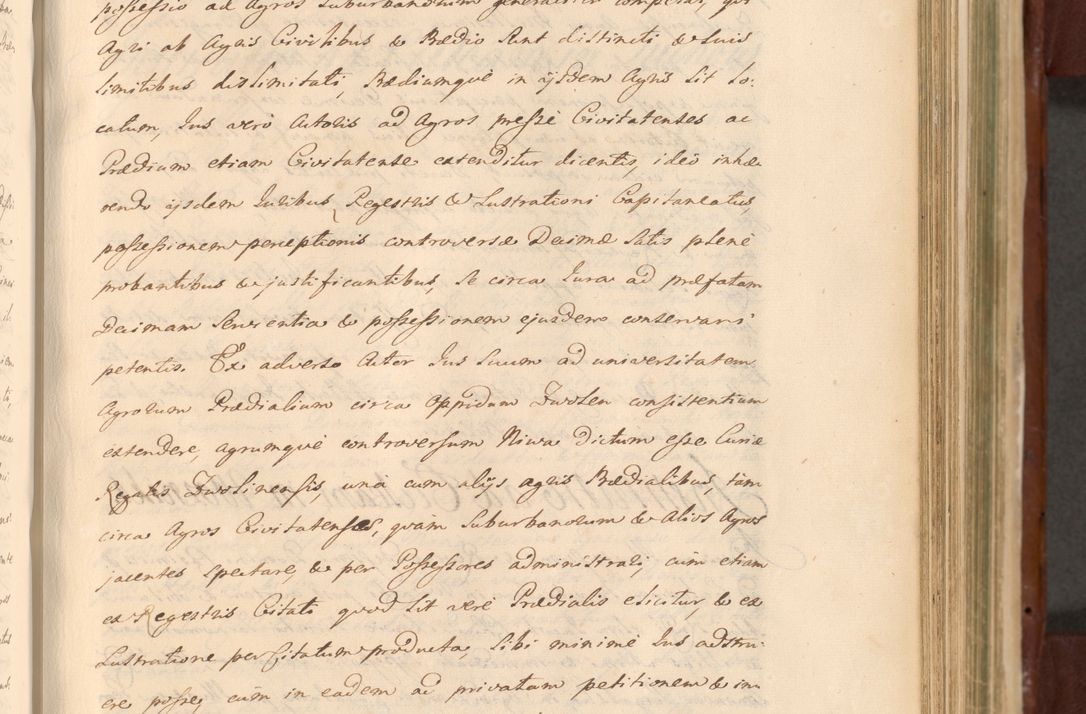 possessio ad Agros Suburbanorum generaliter comperat, qui
Agri ab Agris Civilibus & Prædio sunt distincti & suis
limitibus dislimitati, Prædiumquè in ijsdem Agris sit lo-
catum, Jus verò Actoris ad Agros presse Civitatenses ac
Prædium etiam Civitatense extenditur dicentis, ideò inhæ-
rendo ijsdem Juribus, Regestris & Lustrationi Capitaneatus,
possessionem perceptionis controversæ Decimæ satis plenè
probantibus & justificantibus, se circa Jura ad præfatam
Decimam servientia & possessionem ejusdem conservari
petentis. Ex adverso Actor Jus suum ad universitatem
Agrorum Prædialium circa Oppidum Zwolen consistentium
extendere, agrumquè controversum Niwa dictum esse Curiæ
Regalis Zwolinensis, una cum alijs agris Prædialibus, tàm
circa Agros Civitatenses, quàm Suburbanorum & Alios Agros
jacentes spectare, & per Possessores administrari, cùm etiam
ex Regestris Citati quod sit verè Prædialis elicitur, & ex
Lustratione per Citatum producta, sibi minimè Jus adstru-
ere posse, cùm in eadem ad privatam petitionem & in-